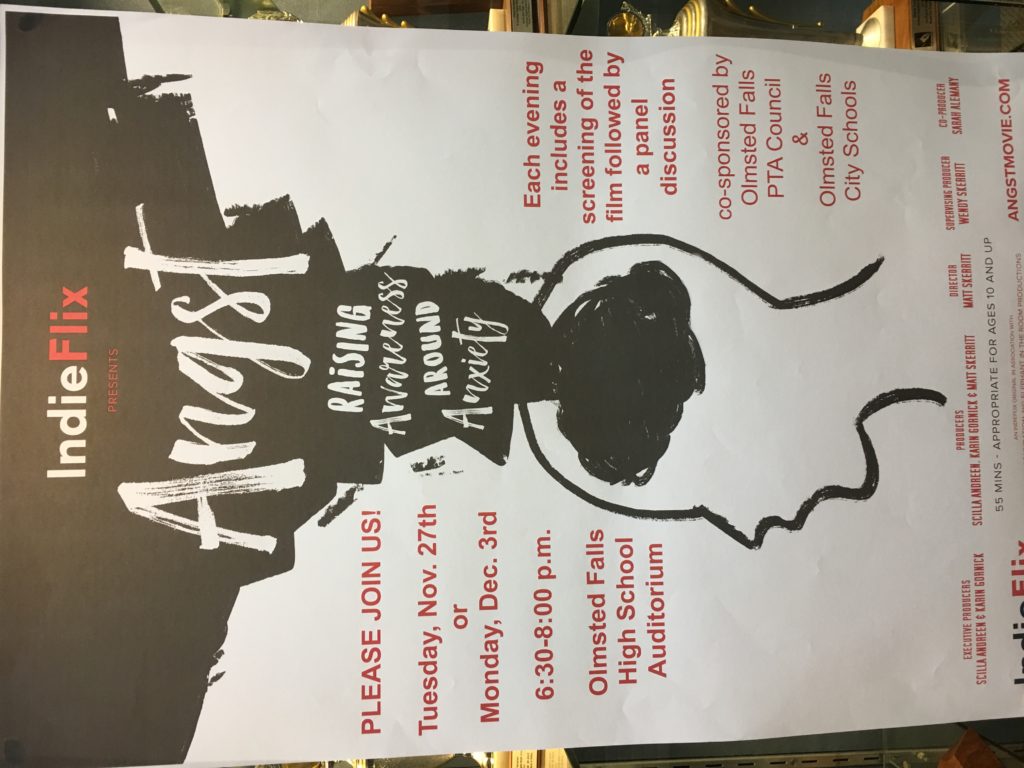 IndieFlix
PRESENTS
Angst
RAiSING
Awareness
AROUND
Anxiety
PLEASE JOIN US!
Tuesday, Nov. 27th
or
Monday, Dec. 3rd
6:30-8:00 p.m.
Olmsted Falls
High School
Auditorium
Each evening
includes a
screening of the
film followed by
a panel
discussion
co-sponsored by
Olmsted Falls
PTA Council
&
Olmsted Falls
City Schools
EXECUTIVE PRODUCERS
SCILLA ANDREEN & KARIN GORNICK
PRODUCERS
SCILLA ANDREEN, KARIN GORNICK & MATT SKERRITT
DIRECTOR
MATT SKERRITT
SUPERVISING PRODUCER
WENDY SKERRITT
CO-PRODUCER
SARAH ALEMANY
55 MINS - APPROPRIATE FOR AGES 10 AND UP
AN INDIEFLIX ORIGINAL IN ASSOCIATION WITH
IN THE ROOM PRODUCTIONS
IndieFlix
ANGSTMOVIE.COM